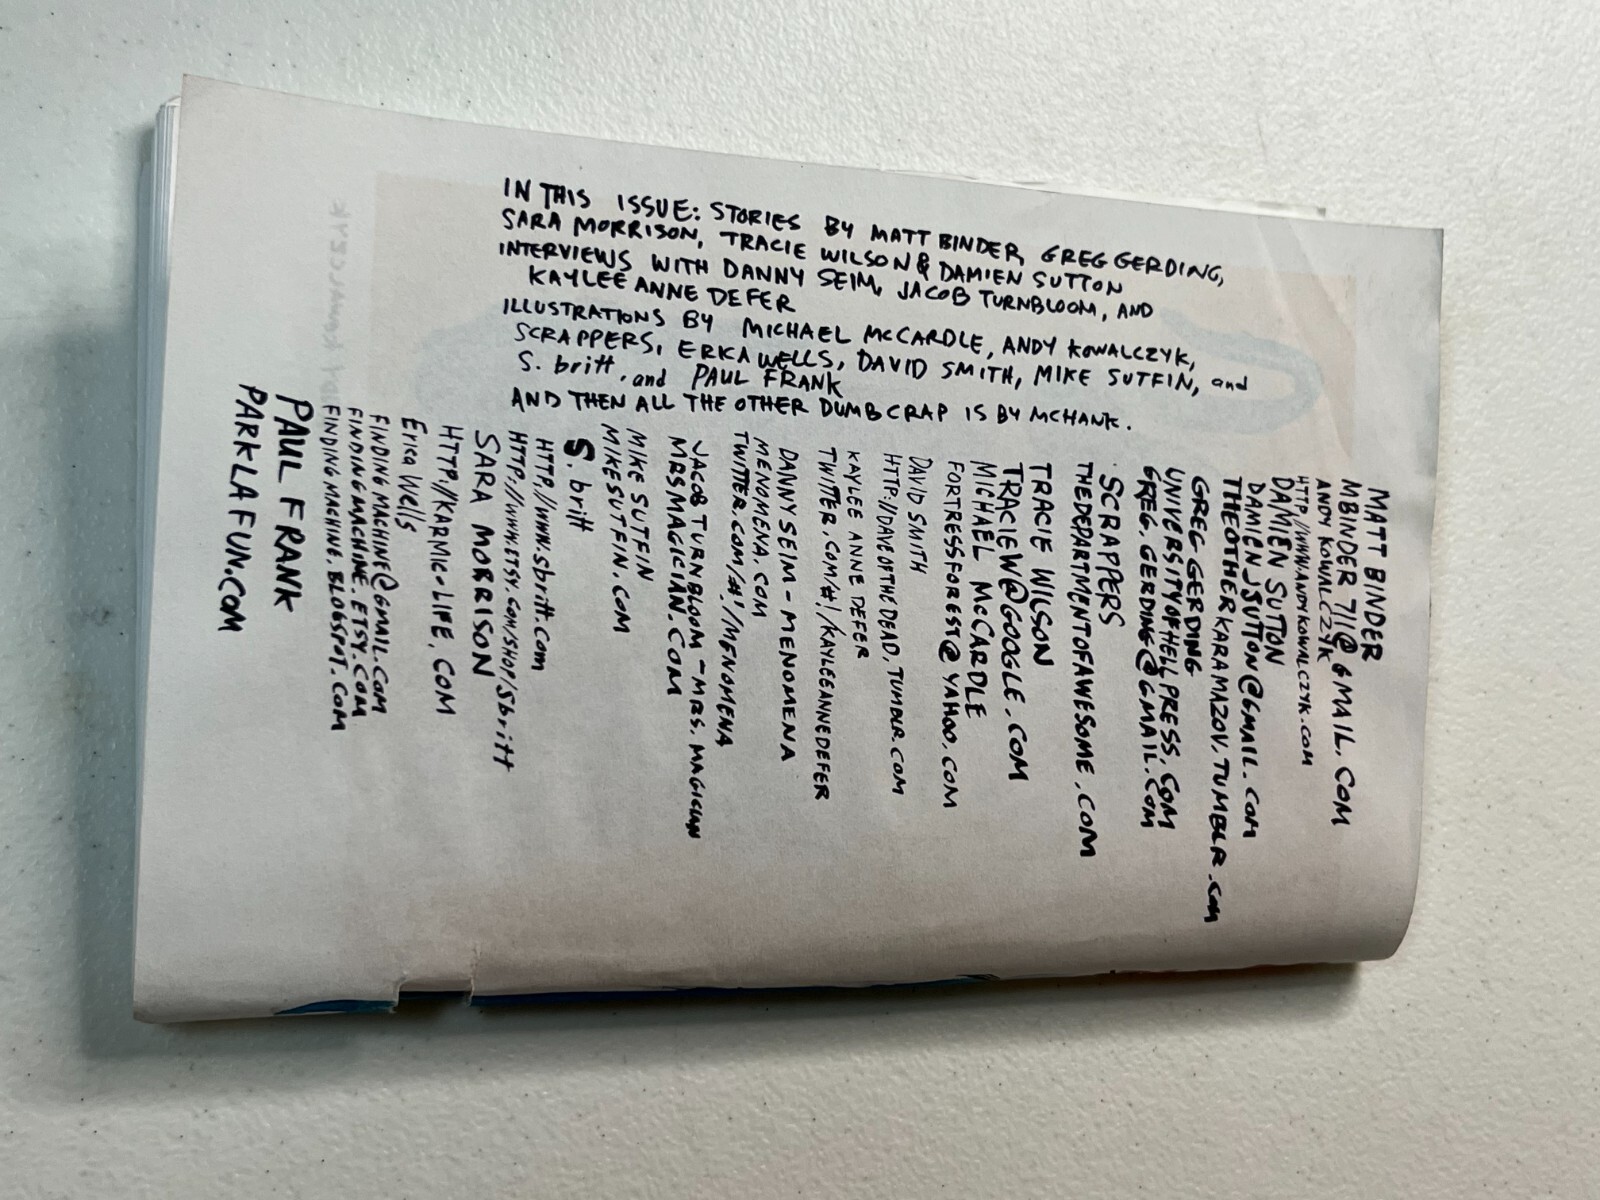 IN THIS ISSUE: STORIES BY MATT BINDER, GREG GERDING,
SARA MORRISON, TRACIE WILSON & DAMIEN SUTTON
INTERVIEWS WITH DANNY SEIM, JACOB TURNBLOOM, AND
KAYLEE ANNE DEFER
ILLUSTRATIONS BY MICHAEL McCARDLE, ANDY KOWALCZYK,
SCRAPPERS, ERICA WELLS, DAVID SMITH, MIKE SUTFIN, and
S. britt, and PAUL FRANK
AND THEN ALL THE OTHER DUMB CRAP IS BY MCHANK.
MATT BINDER
MBINDER711@GMAIL.COM
ANDY KOWALCZYK
HTTP://WWW.ANDYKOWALCZYK.COM
DAMIEN SUTTON
DAMIENJSUTTON@GMAIL.COM
THEOTHERKARAMAZOV.TUMBLR.COM
GREG GERDING
UNIVERSITYOFHELLPRESS.COM
GREG.GERDING@GMAIL.COM
SCRAPPERS
THEDEPARTMENTOFAWESOME.COM
TRACIE WILSON
TRACIEW@GOOGLE.COM
MICHAEL McCARDLE
FORTRESSFOREST@YAHOO.COM
DAVID SMITH
HTTP://DAVEOFTHEDEAD.TUMBLR.COM
KAYLEE ANNE DEFER
TWITTER.COM/#!/KAYLEEANNEDEFER
DANNY SEIM - MENOMENA
MENOMENA.COM
TWITTER.COM/#!/MENOMENA
JACOB TURNBLOOM - MRS. MAGICIAN
MRSMAGICIAN.COM
MIKE SUTFIN
MIKESUTFIN.COM
S. britt
HTTP://WWW.sbritt.com
HTTP://WWW.ETSY.COM/SHOP/Sbritt
SARA MORRISON
HTTP://KARMIC-LIFE.COM
Erica Wells
FINDINGMACHINE@GMAIL.COM
FINDINGMACHINE.ETSY.COM
FINDINGMACHINE.BLOGSPOT.COM
PAUL FRANK
PARKLAFUN.COM